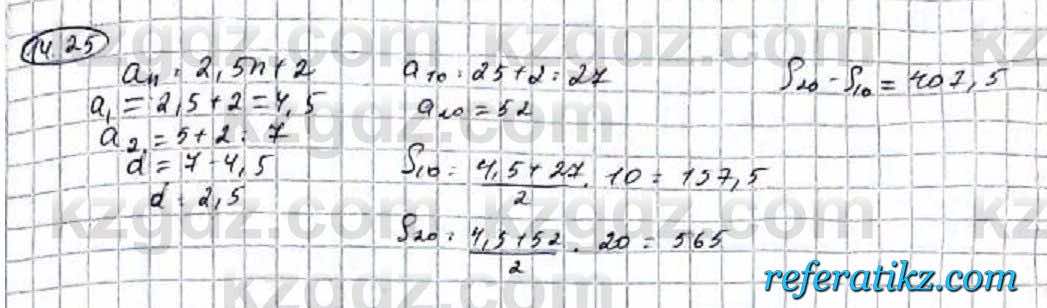 14.25
aₙ = 2,5n+2
a₁ = 2,5+2=4,5
a₂ = 5+2 = 7
d = 7-4,5
d = 2,5
a₁₀ = 25+2 = 27
a₂₀ = 52
S₁₀ = (4,5+27)/2 · 10 = 157,5
S₂₀ = (4,5+52)/2 · 20 = 565
S₂₀ - S₁₀ = 407,5
kzgdz.com
referatikz.com